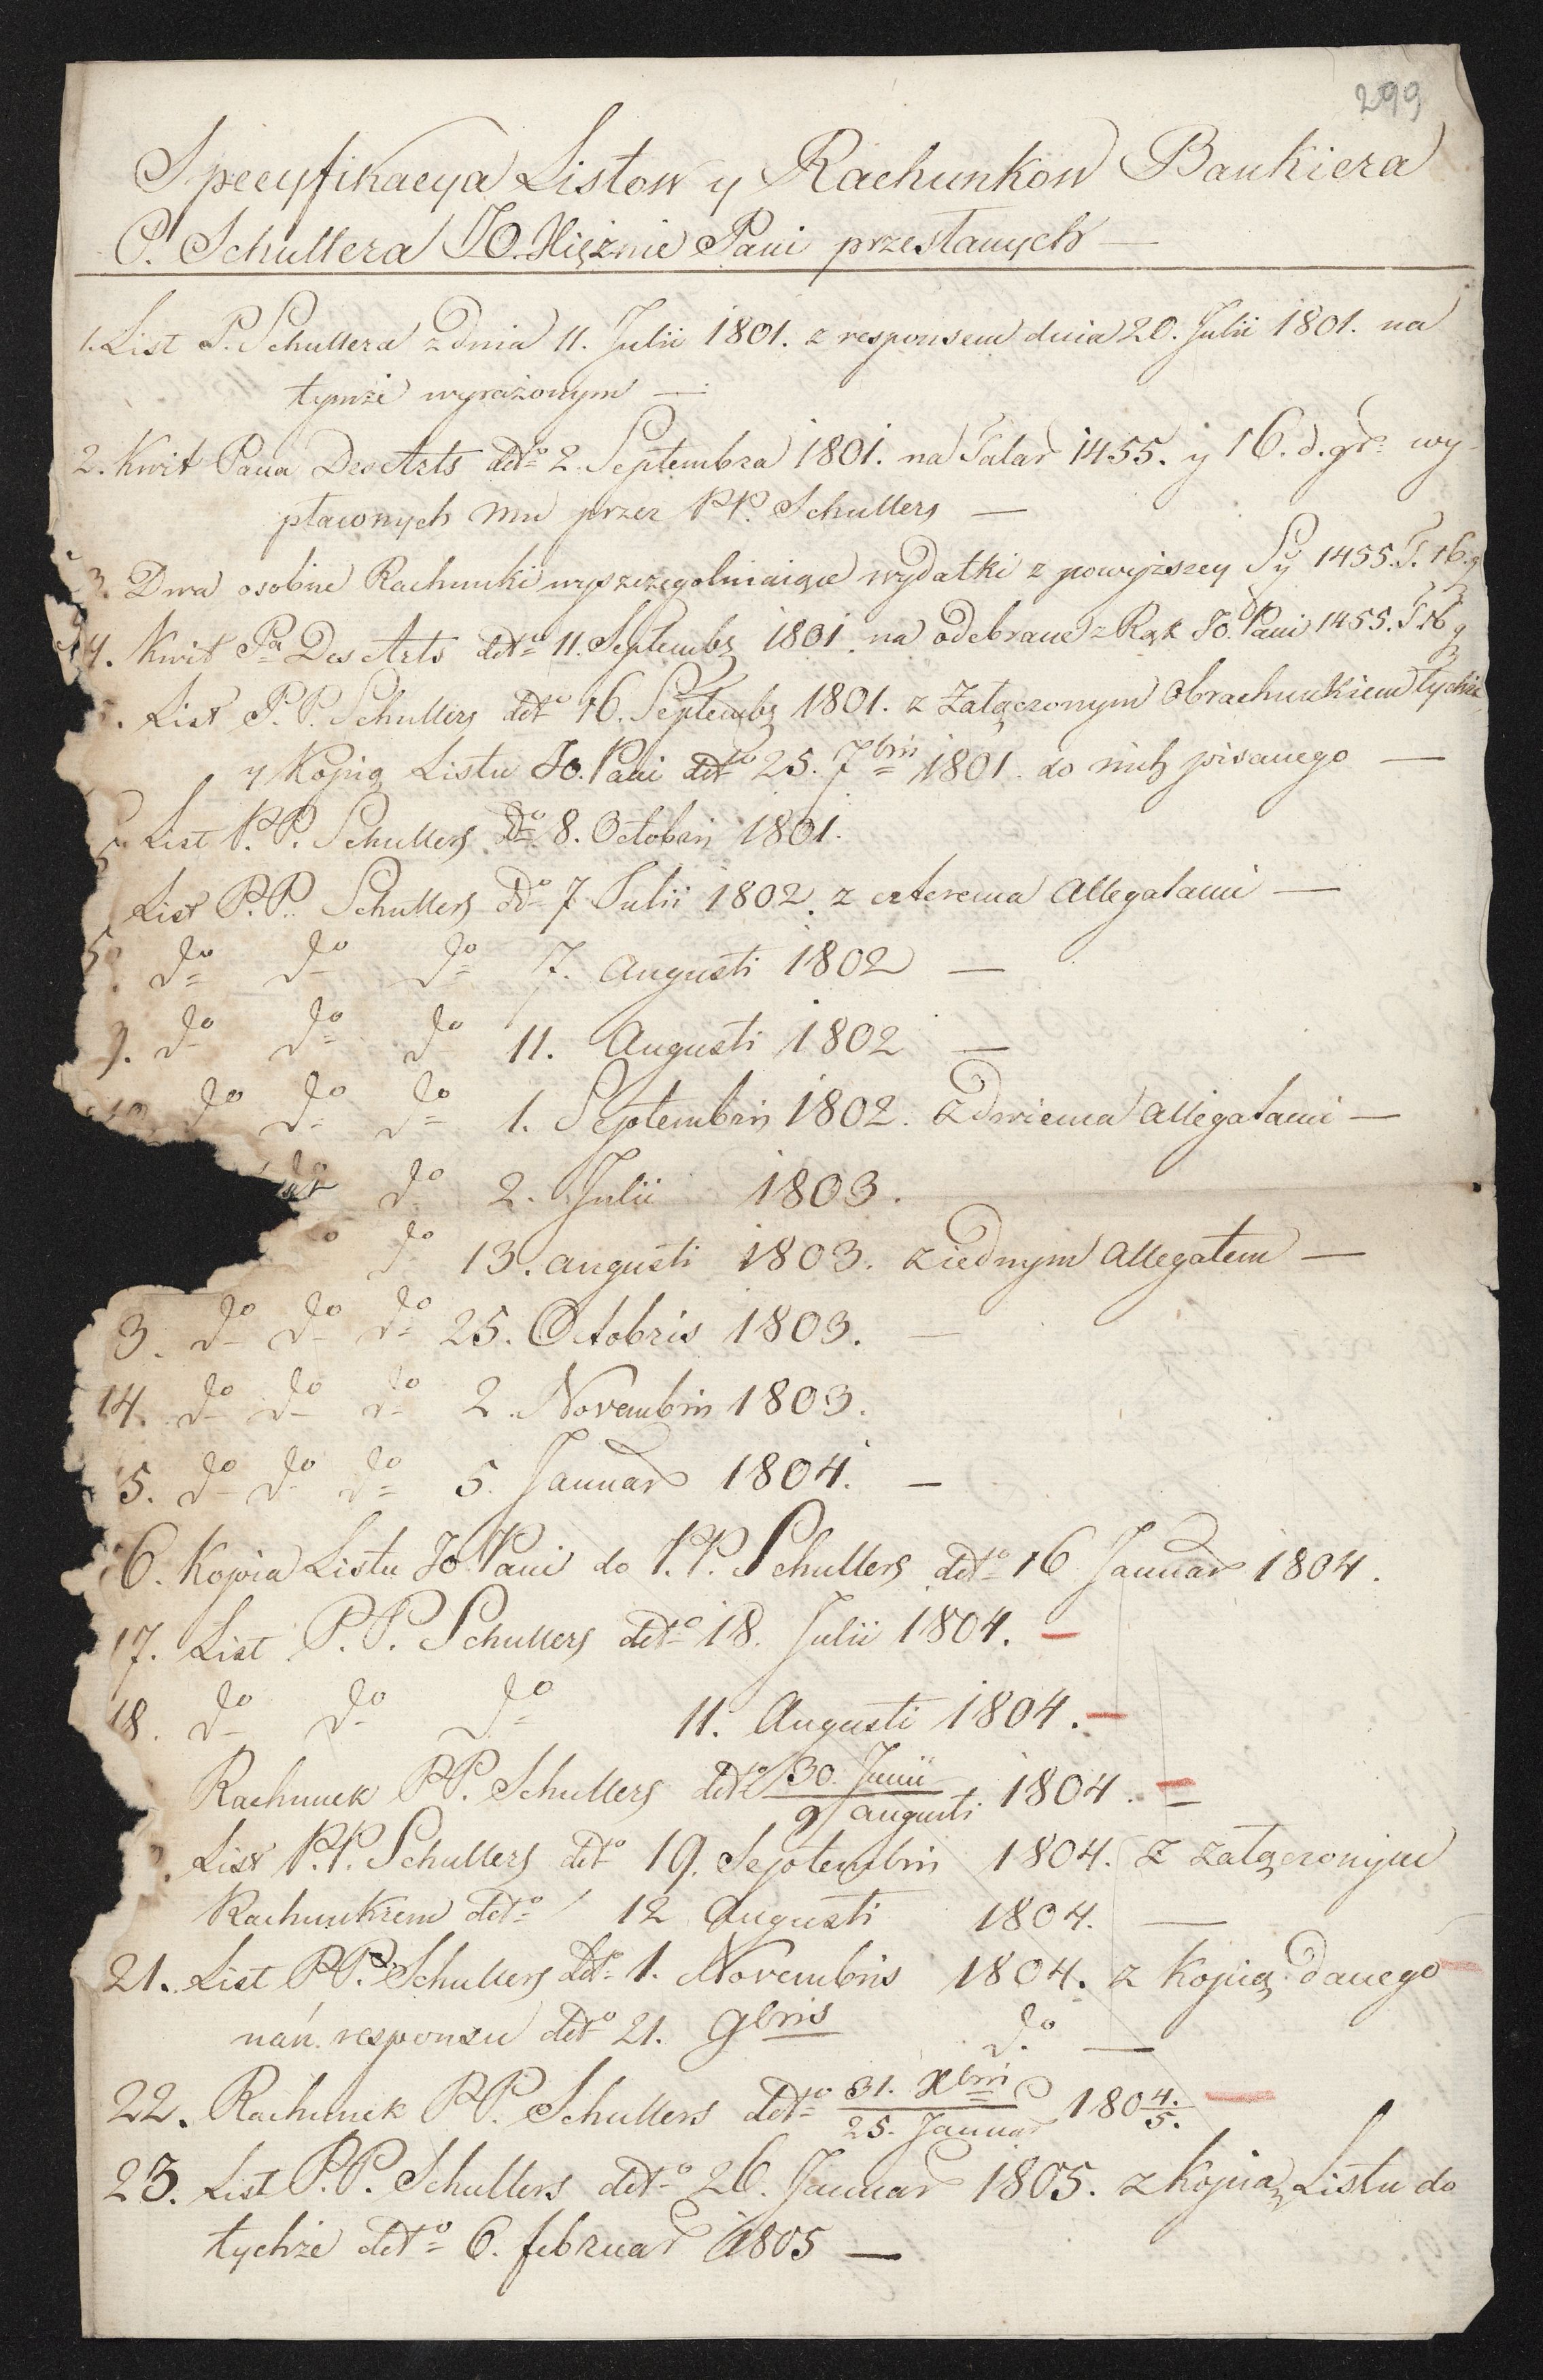 299
Specyfikacya Listow y Rachunkow Bankiera
P. Schultera JO. Xiężnie Pani przesłanych —
1. List P. Schultera z dnia 11. Julii 1801. z responsem dnia 20. Julii 1801. na
tymże wyrażonym —
2. Kwit Pana DesArts ddto 2. Septembra 1801. na Talar 1455. y 16. d. gr. wy-
płaconych mu przez PP. Schulters —
3. Dwa osobne Rachunki wyszczegolniaiące wydatki z powyższey Sy 1455. T. 16. g
4. Kwit Pa Des Arts ddto 11. Septembr 1801. na odebrane z Rąk Jo. Pani 1455. T. 16 g
. List P. P. Schulters ddto 16. Septembr 1801. z Załączonym Obrachunkiem tychże
y Kopią Listu Jo. Pani ddto 25. 7bris 1801. do nich pisanego —
List P. P. Schulters Do 8. Octobris 1801.
List P. P. Schulters dd 7 Julii 1802. z czterema Allegatami —
. do do do 7. Augusti 1802 —
9. do do do 11. Augusti 1802 —
10. do do do 1. Septembris 1802. z dwiema Allegatami —
do 2. Julii 1803.
do 13. augusti 1803. z iednym Allegatem —
3. do do do 25. Octobris 1803. —
14. do do do 2. Novembris 1803.
5. do do do 5. Januar 1804. —
6. Kopia Listu Jo Pani do P. P. Schulters ddto 16 Januar 1804.
17. List P. P. Schulters ddto 18. Julii 1804. —
18. do do do 11. Augusti 1804. —
Rachunek PP. Schulters ddto 30. Junii / 9 augusti 1804. —
. List P. P. Schulters ddto 19. Septembris 1804. z załączonym
Rachunkiem ddto 12 Augusti 1804. —
21. List PP. Schulters ddto 1. Novembris 1804. z Kopią danego
nań responsu ddto 21. 9bris do —
22. Rachunek PP. Schulters ddto 31. Xbris / 25. Januar 180 4/5. —
23. List P. P. Schulters ddto 26. Januar 1805. z Kopią Listu do
tychże ddto 6. februar 1805 —